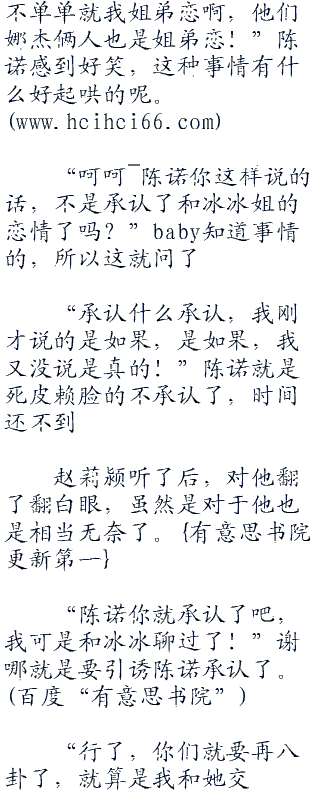 不单单就我姐弟恋啊，他们
娜杰俩人也是姐弟恋！”陈
诺感到好笑，这种事情有什
么好起哄的呢。
(www.hcihci66.com)
“呵呵¯陈诺你这样说的
话，不是承认了和冰冰姐的
恋情了吗？”baby知道事情
的，所以这就问了
“承认什么承认，我刚
才说的是如果，是如果，我
又没说是真的！”陈诺就是
死皮赖脸的不承认了，时间
还不到
赵莉颍听了后，对他翻
了翻白眼，虽然是对于他也
是相当无奈了。{有意思书院
更新第一}
“陈诺你就承认了吧，
我可是和冰冰聊过了！”谢
哪就是要引诱陈诺承认了。
(百度“有意思书院”)
“行了，你们就要再八
卦了，就算是我和她交